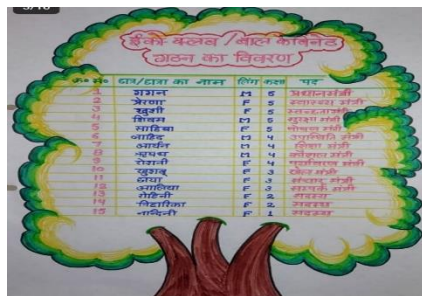 ईको क्लब / बाल कैबिनेट
गठन का विवरण
क्र० सं० छात्र/छात्रा का नाम लिंग कक्षा पद
1 गगन M 5 प्रधानमंत्री
2 प्रेरणा F 5 स्वास्थ्य मंत्री
3 खुशी F 5 स्वच्छता मंत्री
4 शिवम M 5 सुरक्षा मंत्री
5 साहिबा F 5 पोषण मंत्री
6 वाहिद M 4 उपस्थिति मंत्री
7 M 4 शिक्षा मंत्री
8 M 4 मंत्री
9 रोशनी F 4 पुस्तकालय मंत्री
10 खुशबू F 3 खेल मंत्री
11 छाया F 3 संचार मंत्री
12 आलिया F 3 मंत्री
13 मोहिनी F 2 सदस्य
14 निहारिका F 2 सदस्य
15 नन्दिनी F 1 सदस्य